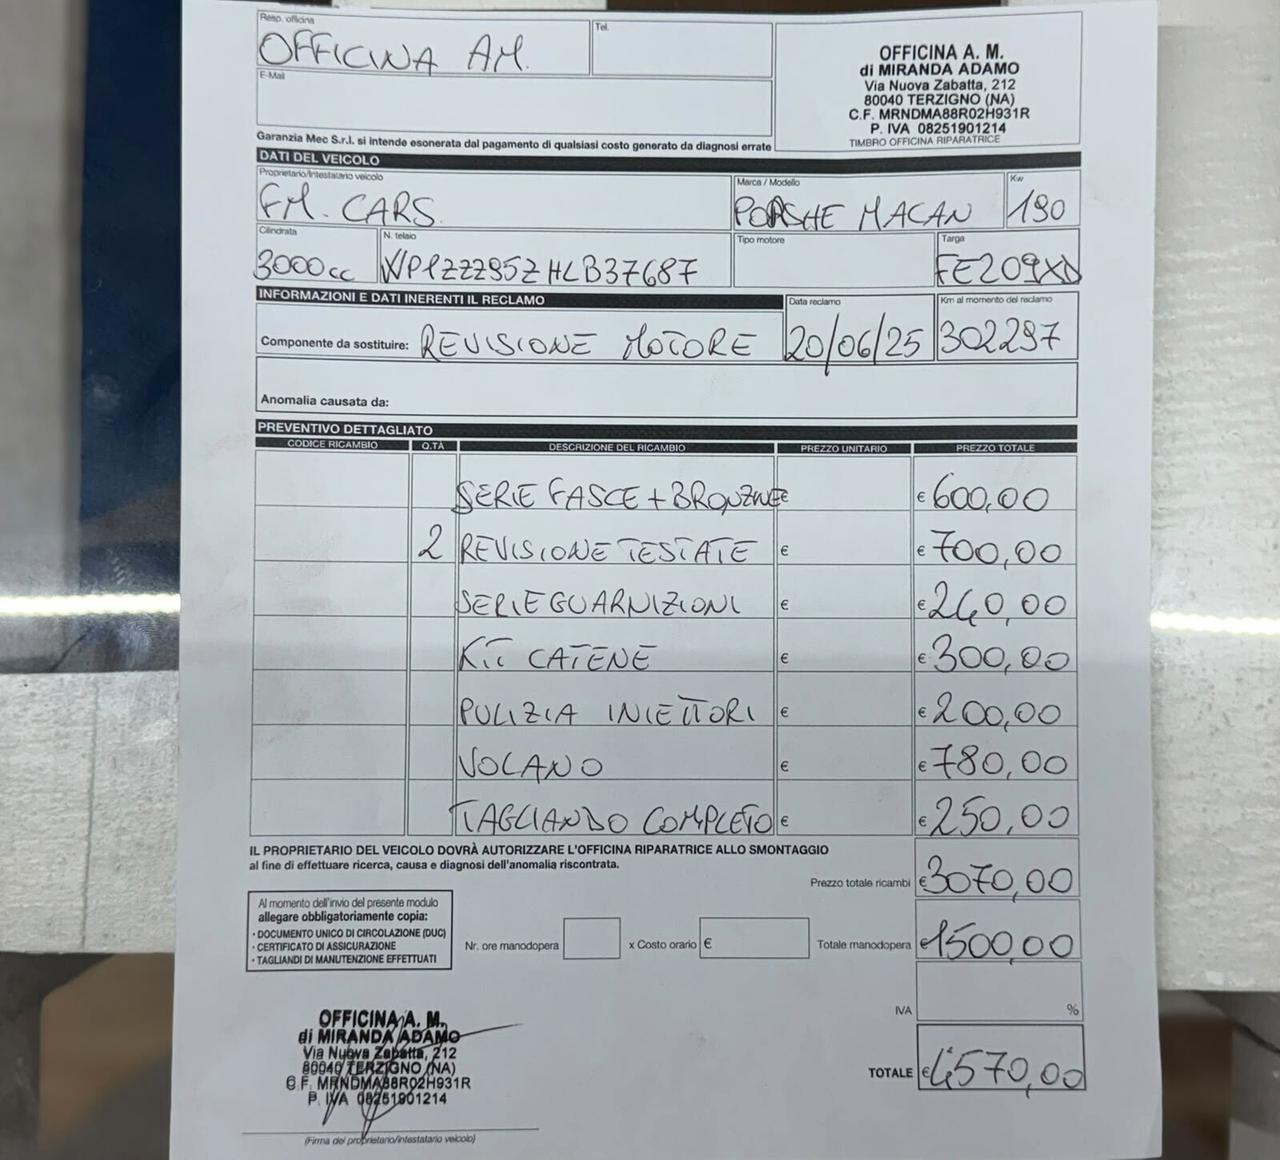 Resp. officina
OFFICINA AM.
Tel.
E-Mail
OFFICINA A. M.
di MIRANDA ADAMO
Via Nuova Zabatta, 212
80040 TERZIGNO (NA)
C.F. MRNDMA88R02H931R
P. IVA 08251901214
TIMBRO OFFICINA RIPARATRICE
Garanzia Mec S.r.l. si intende esonerata dal pagamento di qualsiasi costo generato da diagnosi errate
DATI DEL VEICOLO
Proprietario/Intestatario veicolo
FM. CARS.
Marca / Modello
PORSHE MACAN
Kw
190
Cilindrata
3000cc
N. telaio
WP1ZZZ95ZHLB37687
Tipo motore
Targa
FE209XD
INFORMAZIONI E DATI INERENTI IL RECLAMO
Data reclamo
20/06/25
Km al momento del reclamo
302297
Componente da sostituire: REVISIONE MOTORE
Anomalia causata da:
PREVENTIVO DETTAGLIATO
CODICE RICAMBIO Q.TÀ DESCRIZIONE DEL RICAMBIO PREZZO UNITARIO PREZZO TOTALE
SERIE FASCE + BRONZINE € € 600,00
2 REVISIONE TESTATE € € 700,00
SERIE GUARNIZIONI € € 240,00
KIT CATENE € € 300,00
PULIZIA INIETTORI € € 200,00
VOLANO € € 780,00
TAGLIANDO COMPLETO € € 250,00
IL PROPRIETARIO DEL VEICOLO DOVRÀ AUTORIZZARE L'OFFICINA RIPARATRICE ALLO SMONTAGGIO
al fine di effettuare ricerca, causa e diagnosi dell'anomalia riscontrata.
Prezzo totale ricambi € 3070,00
Al momento dell'invio del presente modulo
allegare obbligatoriamente copia:
• DOCUMENTO UNICO DI CIRCOLAZIONE (DUC)
• CERTIFICATO DI ASSICURAZIONE
• TAGLIANDI DI MANUTENZIONE EFFETTUATI
Nr. ore manodopera x Costo orario € Totale manodopera € 1500,00
IVA %
TOTALE € 4570,00
OFFICINA A. M.
di MIRANDA ADAMO
Via Nuova Zabatta, 212
80040 TERZIGNO (NA)
C.F. MRNDMA88R02H931R
P. IVA 08251901214
(Firma del proprietario/intestatario veicolo)